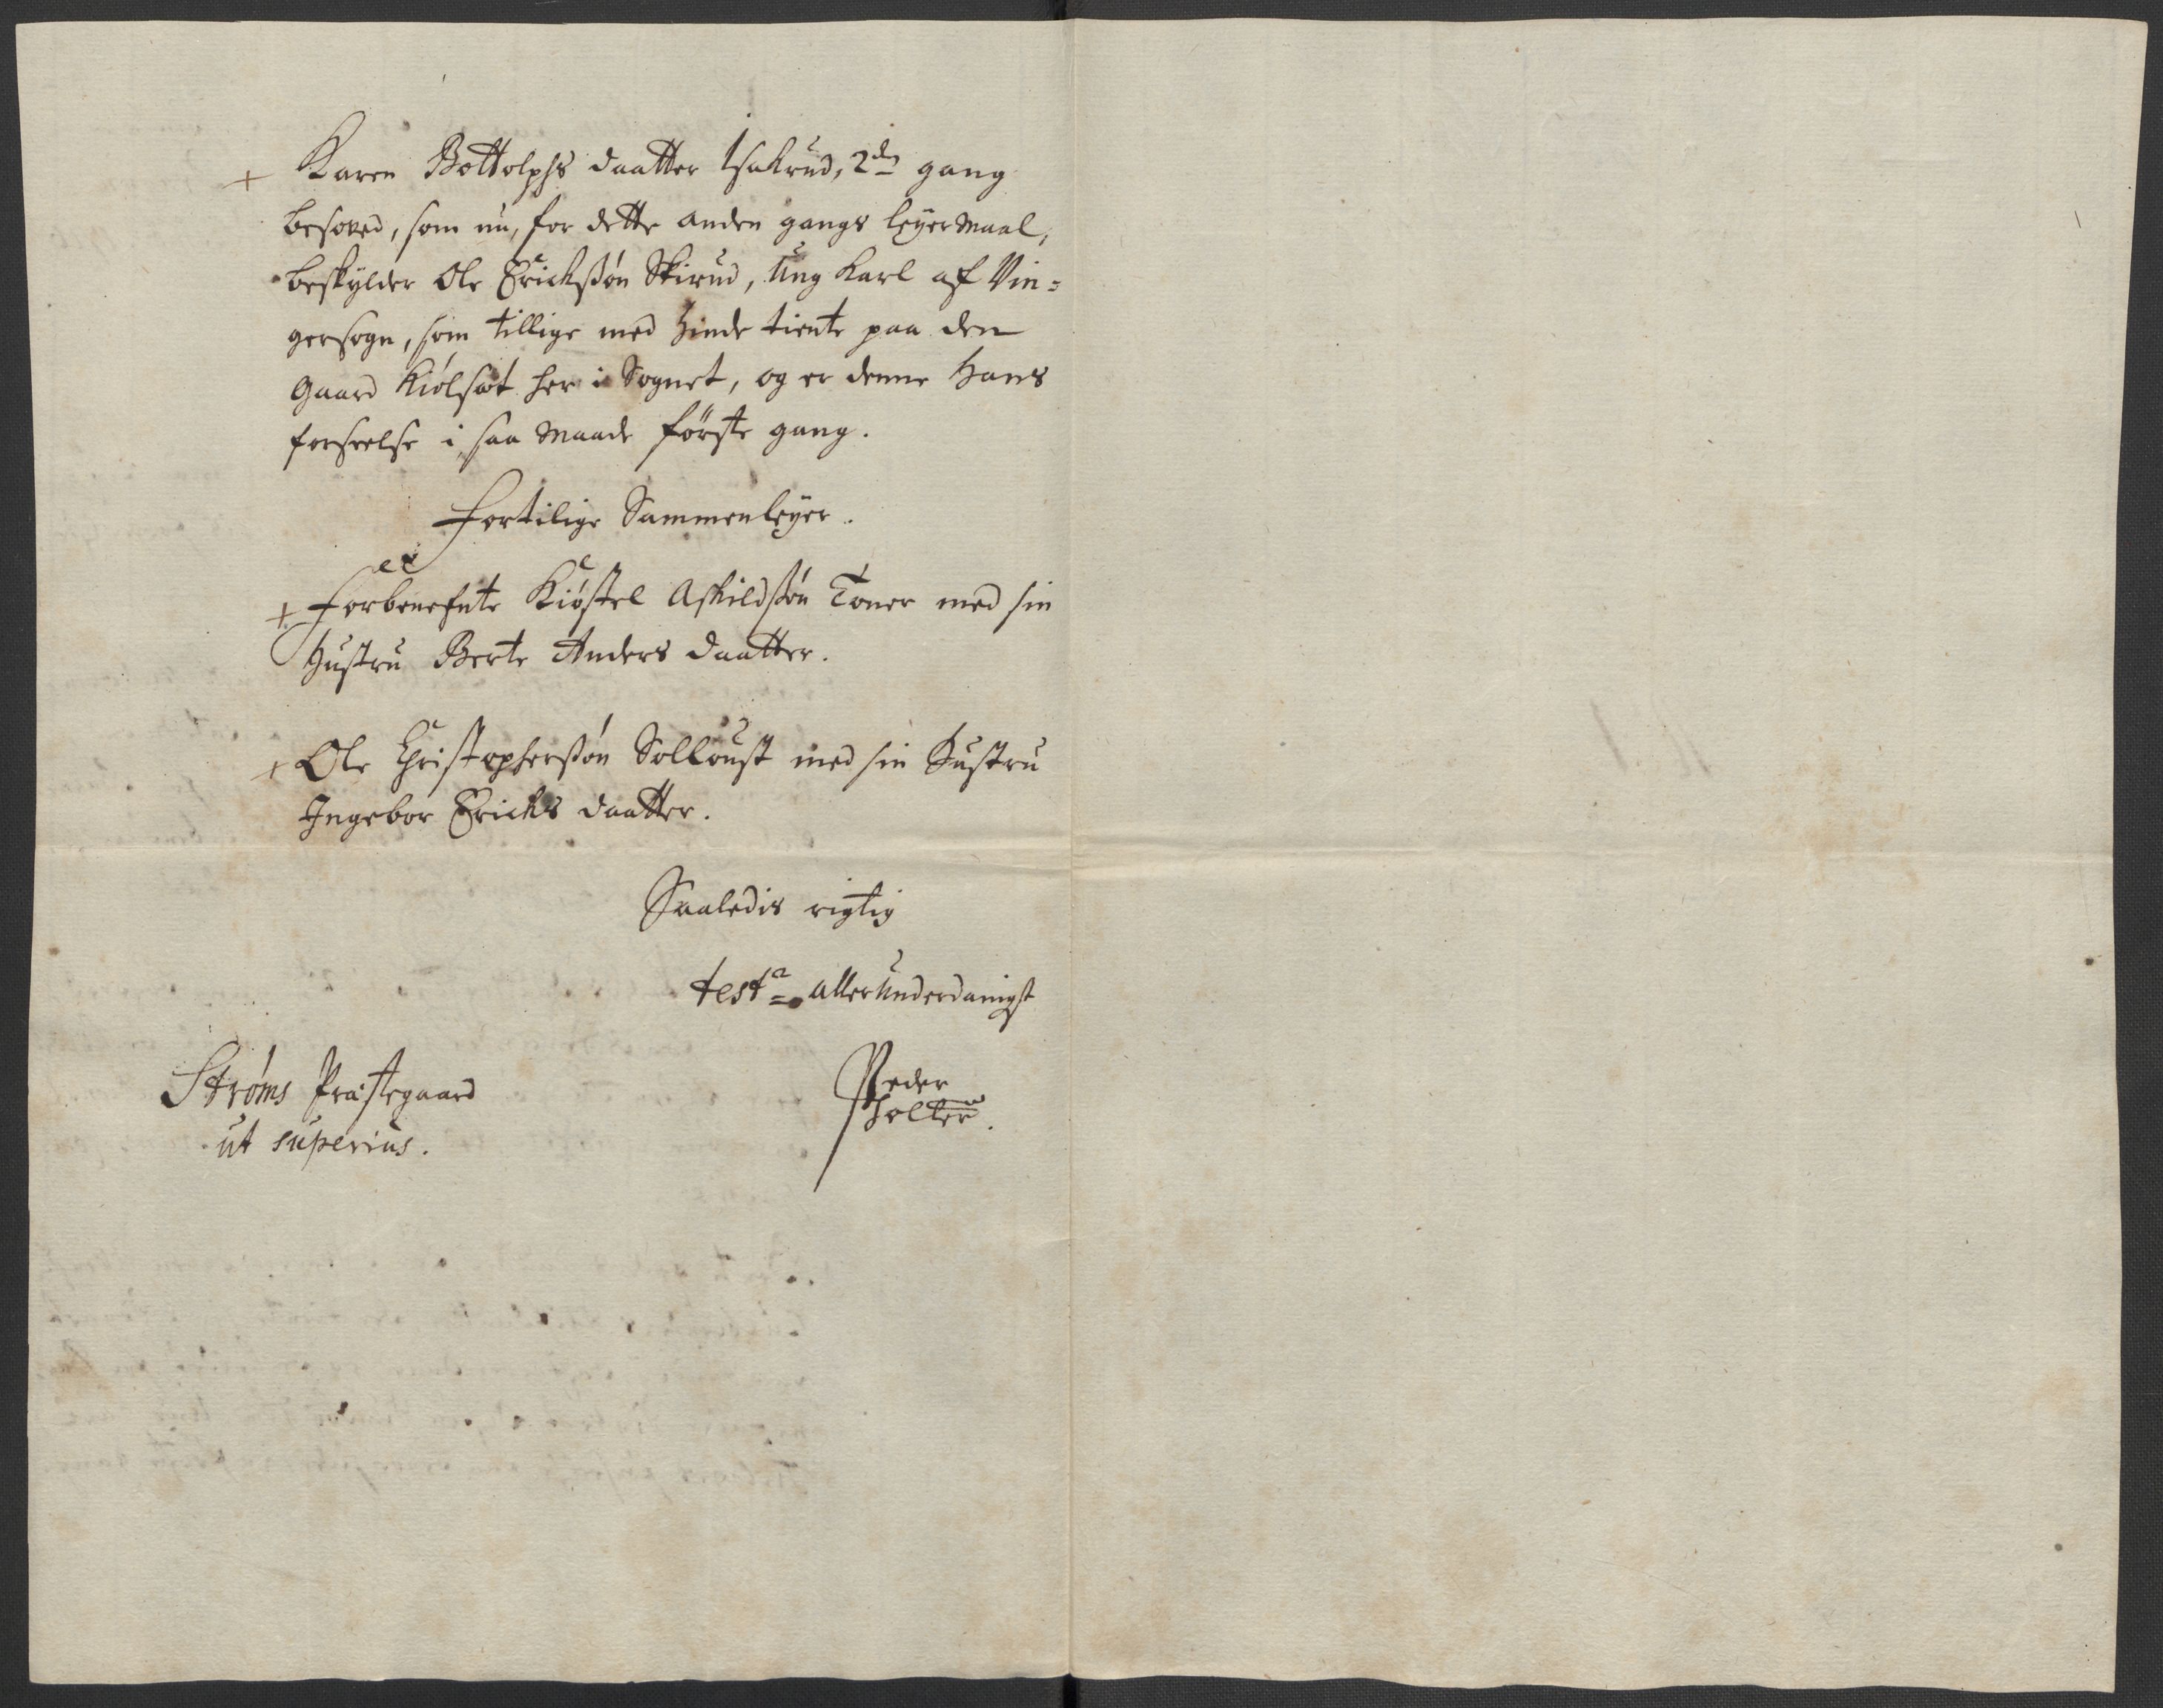 + Karen Bottolphs daatter Isakrud, 2den gang
besoved, som nu, for dette anden gangs leyermaal,
beskylder Ole Erichssøn Skirud, Ung Karl af Vin=
gersogn, som tillige med hinde tiente paa den
gaard Kiølsæt her i Sognet, og er denne hans
forseelse i saa maade første gang.
Fortilige Sammenleyer.
+ Forbenefnte Kiøstel Askildssøn Toner med sin
hustru Berte Anders daatter.
+ Ole Christopherssøn Solloust med sin Hustru
Ingebor Erichs daatter.
Saaledis rigtig
testr allerunderdanigst
Strøms Præstegaard
ut superius.
Peder
Holter.